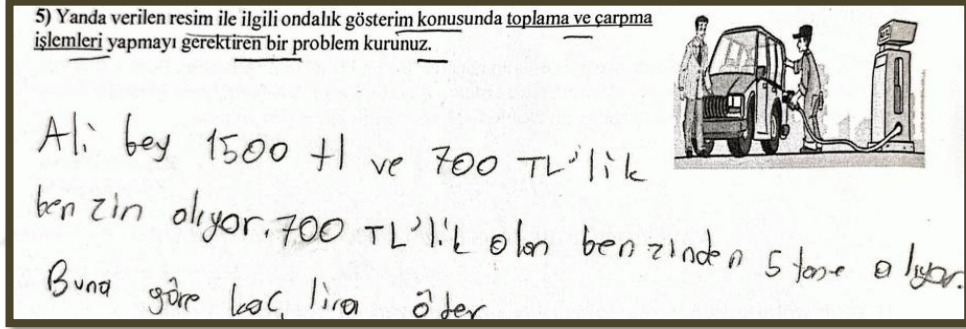 5) Yanda verilen resim ile ilgili ondalık gösterim konusunda toplama ve çarpma
işlemleri yapmayı gerektiren bir problem kurunuz.
Ali bey 1500 tl ve 700 TL'lik
benzin alıyor. 700 TL'lik olan benzinden 5 tane alıyor.
Buna göre kaç lira öder